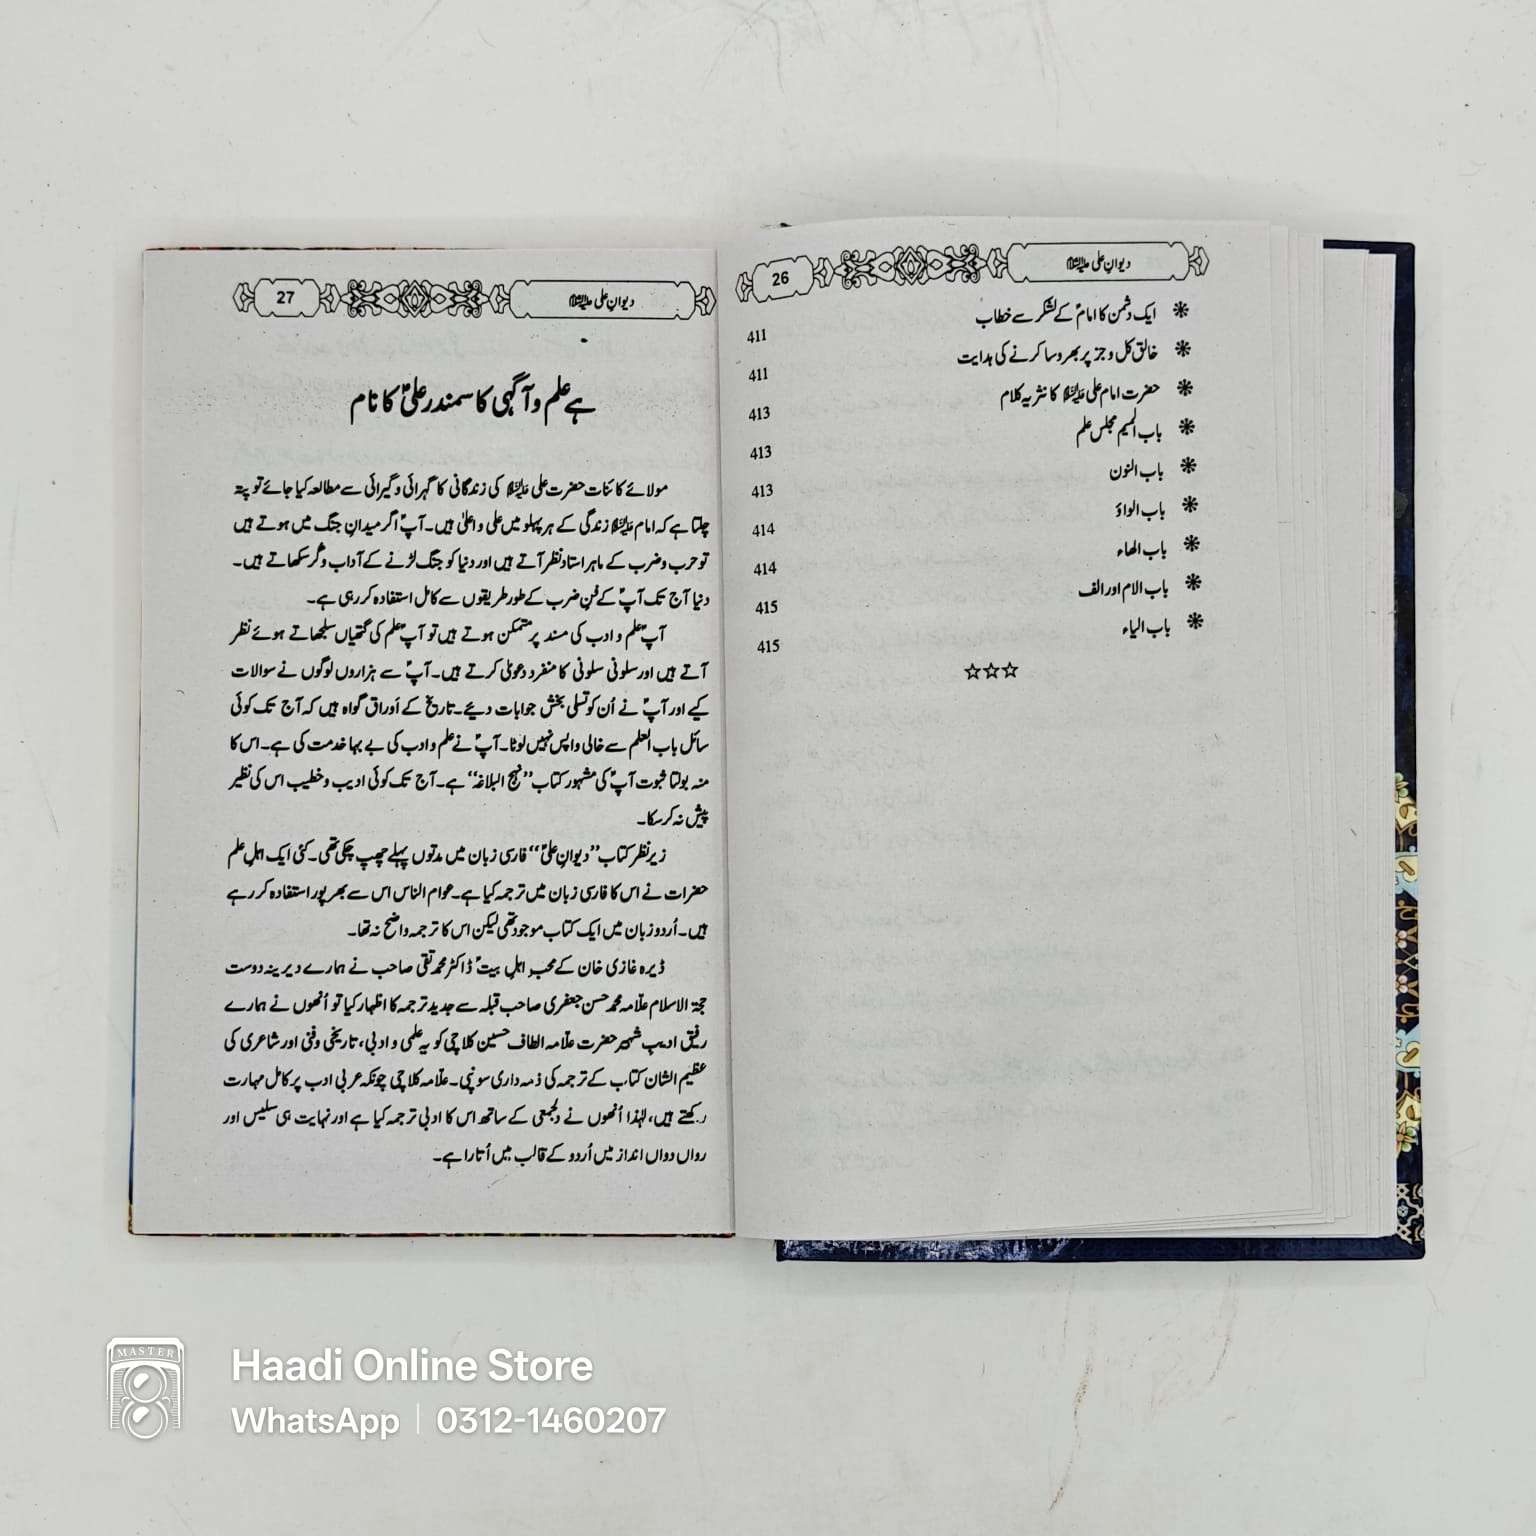 دیوانِ علی علیہ السلام
26
ایک دشمن کا امامؑ کے لشکر سے خطاب 411
خالق کل و جز پر بھروسا کرنے کی ہدایت 411
حضرت امام علی علیہ السلام کا نثریہ کلام 413
باب المیم مجلس علم 413
باب النون 413
باب الواؤ 414
باب الھاء 414
باب الام اور الف 415
باب الیاء 415
☆☆☆
دیوانِ علی علیہ السلام
27
ہے علم و آگہی کا سمندر علیؑ کا نام
مولائے کائنات حضرت علی علیہ السلام کی زندگانی کا گہرائی و گیرائی سے مطالعہ کیا جائے تو پتہ
چلتا ہے کہ امام علیہ السلام زندگی کے ہر پہلو میں علی و اعلیٰ ہیں۔ آپؑ اگر میدانِ جنگ میں ہوتے ہیں
تو حرب و ضرب کے ماہر استاد نظر آتے ہیں اور دنیا کو جنگ لڑنے کے آداب و گُر سکھاتے ہیں۔
دنیا آج تک آپؑ کے فنِ ضرب کے طور طریقوں سے کامل استفادہ کر رہی ہے۔
آپؑ علم و ادب کی مسند پر متمکن ہوتے ہیں تو آپؑ علم کی گتھیاں سلجھاتے ہوئے نظر
آتے ہیں اور سلونی سلونی کا منفرد دعویٰ کرتے ہیں۔ آپؑ سے ہزاروں لوگوں نے سوالات
کیے اور آپؑ نے اُن کو تسلی بخش جوابات دیئے۔ تاریخ کے اَوراق گواہ ہیں کہ آج تک کوئی
سائل باب العلم سے خالی واپس نہیں لوٹا۔ آپؑ نے علم و ادب کی بے بہا خدمت کی ہے۔ اس کا
منہ بولتا ثبوت آپؑ کی مشہور کتاب ’’نہج البلاغہ‘‘ ہے۔ آج تک کوئی ادیب و خطیب اس کی نظیر
پیش نہ کر سکا۔
زیر نظر کتاب ’’دیوانِ علیؑ‘‘ فارسی زبان میں مدتوں پہلے چھپ چکی تھی۔ کئی ایک اہلِ علم
حضرات نے اس کا فارسی زبان میں ترجمہ کیا ہے۔ عوام الناس اس سے بھرپور استفادہ کر رہے
ہیں۔ اُردو زبان میں ایک کتاب موجود تھی لیکن اس کا ترجمہ واضح نہ تھا۔
ڈیرہ غازی خان کے محب اہلِ بیتؑ ڈاکٹر محمد تقی صاحب نے ہمارے دیرینہ دوست
حجۃ الاسلام علّامہ محمد حسن جعفری صاحب قبلہ سے جدید ترجمہ کا اظہار کیا تو اُنھوں نے ہمارے
رفیق ادیب شہیر حضرت علّامہ الطاف حسین کلاچی کو یہ علمی و ادبی، تاریخی و فنی اور شاعری کی
عظیم الشان کتاب کے ترجمہ کی ذمہ داری سونپی۔ علّامہ کلاچی چونکہ عربی ادب پر کامل مہارت
رکھتے ہیں، لہٰذا اُنھوں نے دلجمعی کے ساتھ اس کا ادبی ترجمہ کیا ہے اور نہایت ہی سلیس اور
رواں دواں انداز میں اُردو کے قالب میں اُتارا ہے۔
MASTER
Haadi Online Store
WhatsApp | 0312-1460207